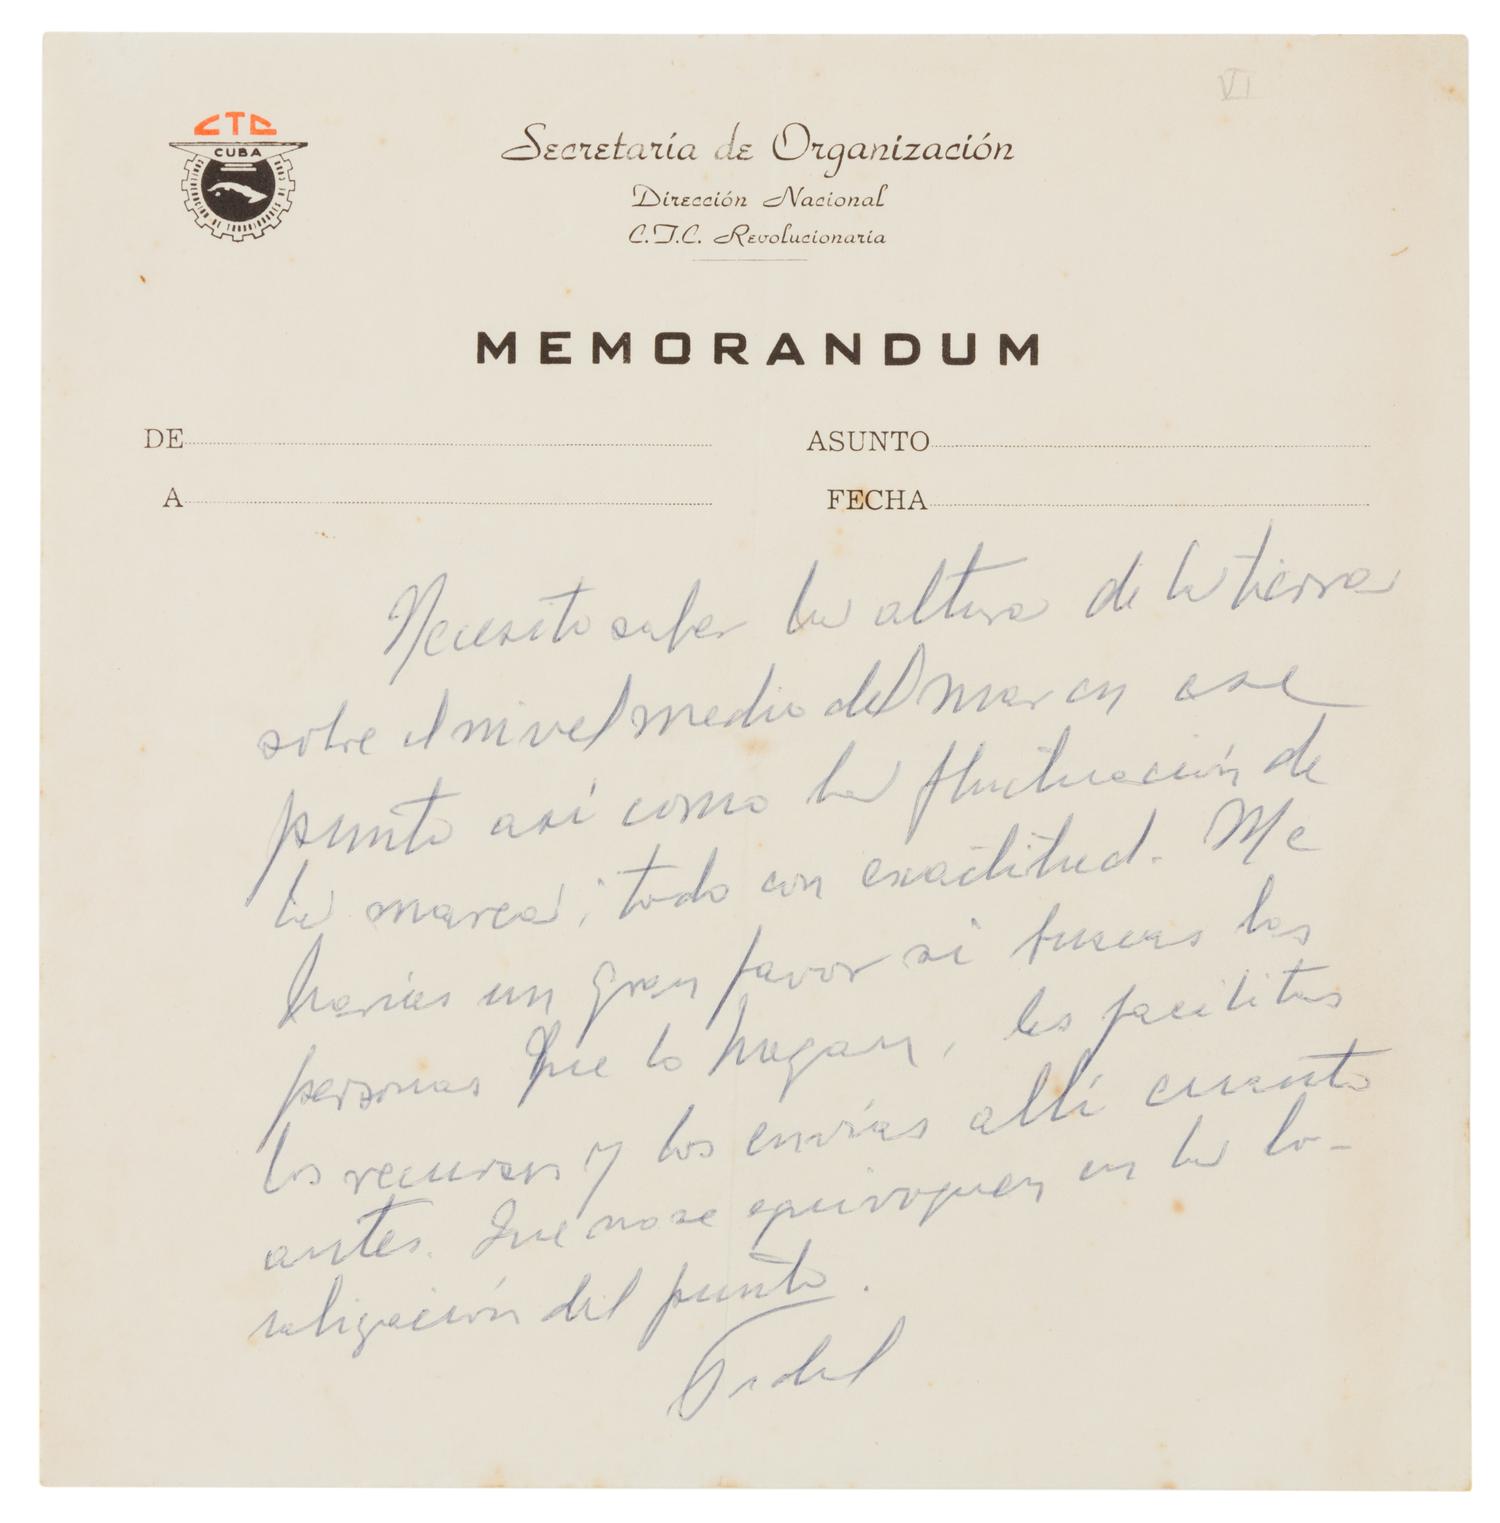 VI
CTC
CUBA
CONFEDERACION DE TRABAJADORES DE CUBA
Secretaría de Organización
Dirección Nacional
C.T.C. Revolucionaria
MEMORANDUM
DE
ASUNTO
A
FECHA
Necesito saber la altura de la tierra
sobre el nivel medio del mar en ese
punto así como la fluctuación de
la marea; todo con exactitud. Me
harías un gran favor si buscas las
personas que lo hagan, les facilitas
los recursos y los envías allí cuanto
antes. Que no se equivoquen en la lo-
calización del punto.
Fidel